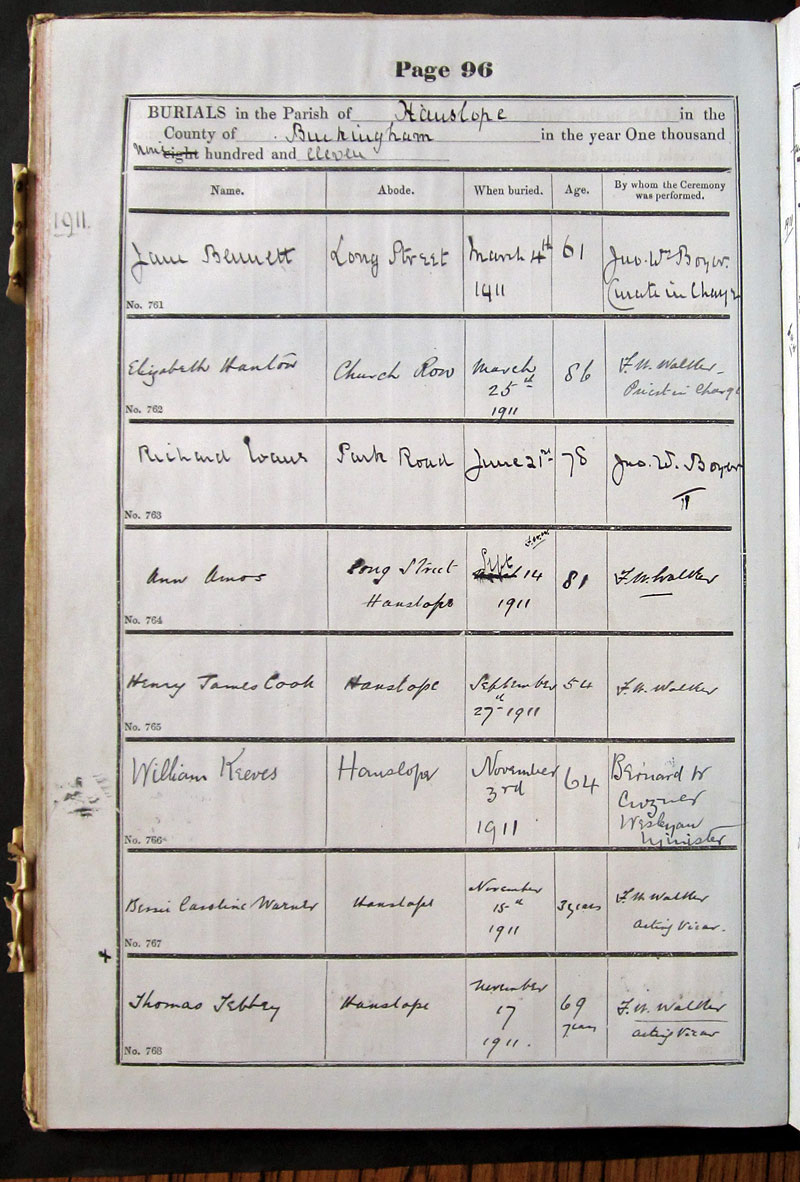 Page 96
BURIALS in the Parish of Hanslope in the
County of Buckingham in the year One thousand
Nine eight hundred and eleven
Name. Abode. When buried. Age. By whom the Ceremony was performed.
1911.
Jane Bennett Long Street March 4th 61 Jno. Wm Boyer.
1911 Curate in Charge
No. 761
Elizabeth Hanlon Church Row March 86 F. W. Walker
25th Priest in Charge
No. 762 1911
Richard Evans Park Road June 21st 78 Jno. W. Boyer
No. 763
Ann Amos Long Street Sept 14 81 F. W. Walker
Hanslope 1911
No. 764
Henry James Cook Hanslope September 54 F. W. Walker
27th 1911
No. 765
William Reeves Hanslope November 64 Bernard W
3rd Cuzner
1911 Wesleyan
No. 766 Minister
Bessie Caroline Warner Hanslope November 3 years F. W. Walker
15th Acting Vicar.
1911
No. 767
Thomas Tebbey Hanslope November 69 F. W. Walker
17 years Acting Vicar
1911.
No. 768